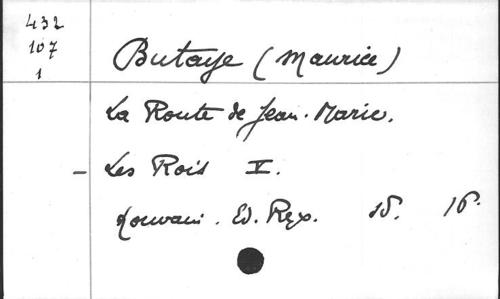 432
107
1
Butaye (Maurice)
La Route de Jean-Marie.
- Les Rois V.
Louvain. Ed. Rex. sd. 16.